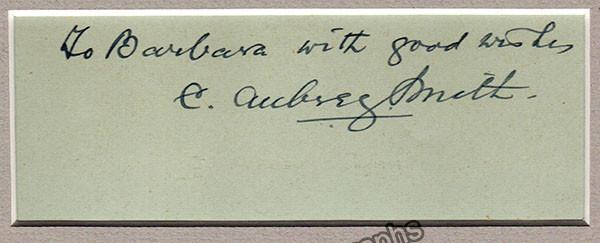 To Barbara with good wishes
C. Aubrey Smith.